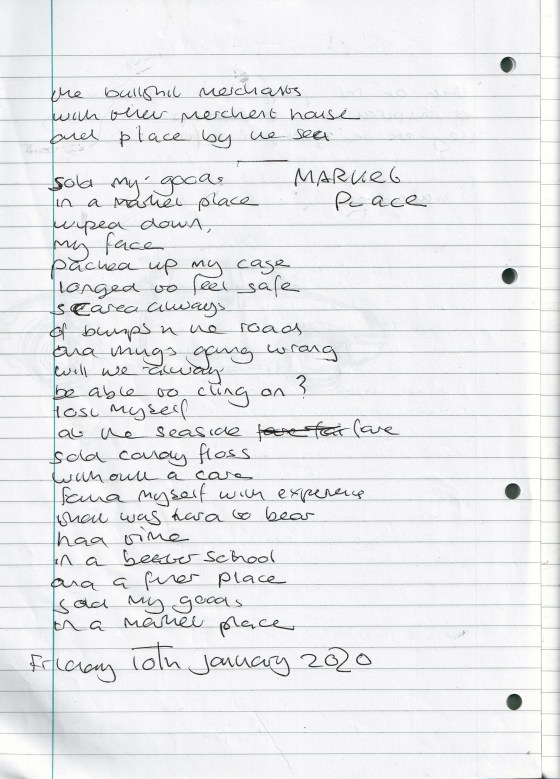 the bullshit merchants
with other merchent house
and place by the sea
MARKET
PLACE
sold my goods
in a market place
wiped down,
my face
packed up my case
longed to feel safe
scared always
of bumps n the road
and things going wrong
will we always
be able to cling on?
lost myself
at the seaside fare
sold candy floss
without a care
found myself with experience
what was hard to bear
had time
in a better school
and a finer place
sold my goods
in a market place
Friday 10th january 2020